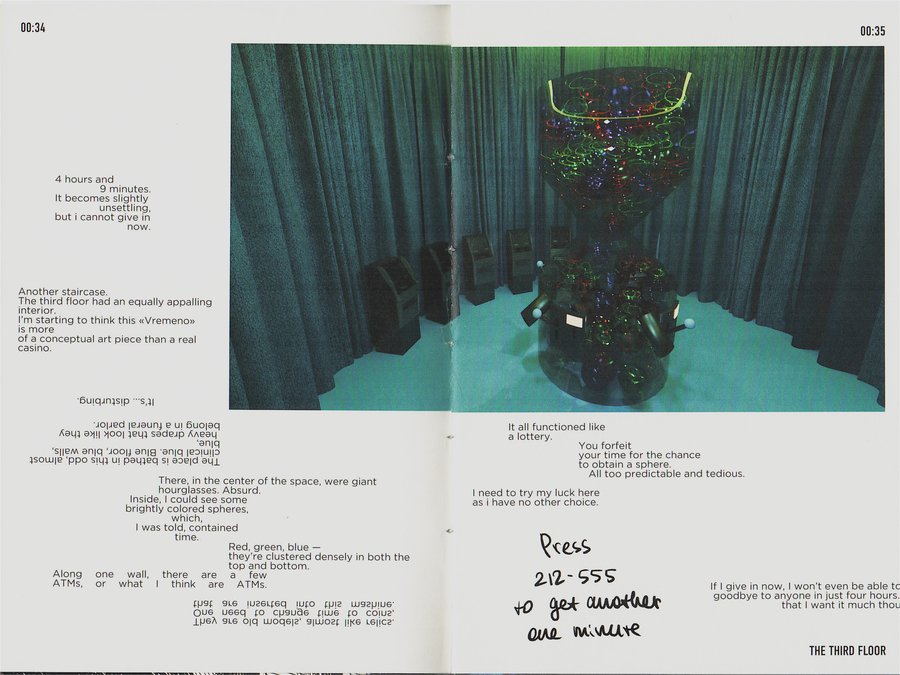 00:34
4 hours and
9 minutes.
It becomes slightly
unsettling,
but i cannot give in
now.
Another staircase.
The third floor had an equally appalling
interior.
I'm starting to think this «Vremeno»
is more
of a conceptual art piece than a real
casino.
The place is bathed in this odd, almost
clinical blue. Blue floor, blue walls,
blue,
heavy drapes that look like they
belong in a funeral parlor.
It's... disturbing.
There, in the center of the space, were giant
hourglasses. Absurd.
Inside, I could see some
brightly colored spheres,
which,
I was told, contained
time.
Red, green, blue —
they're clustered densely in both the
top and bottom.
Along one wall, there are a few
ATMs, or what I think are ATMs.
They are old models, almost like relics.
One need to change time to coins,
that are inserted into this mashine.
00:35
It all functioned like
a lottery.
You forfeit
your time for the chance
to obtain a sphere.
All too predictable and tedious.
I need to try my luck here
as i have no other choice.
Press
212-555
to get another
one minute
If I give in now, I won't even be able to
goodbye to anyone in just four hours.
that I want it much thou
THE THIRD FLOOR